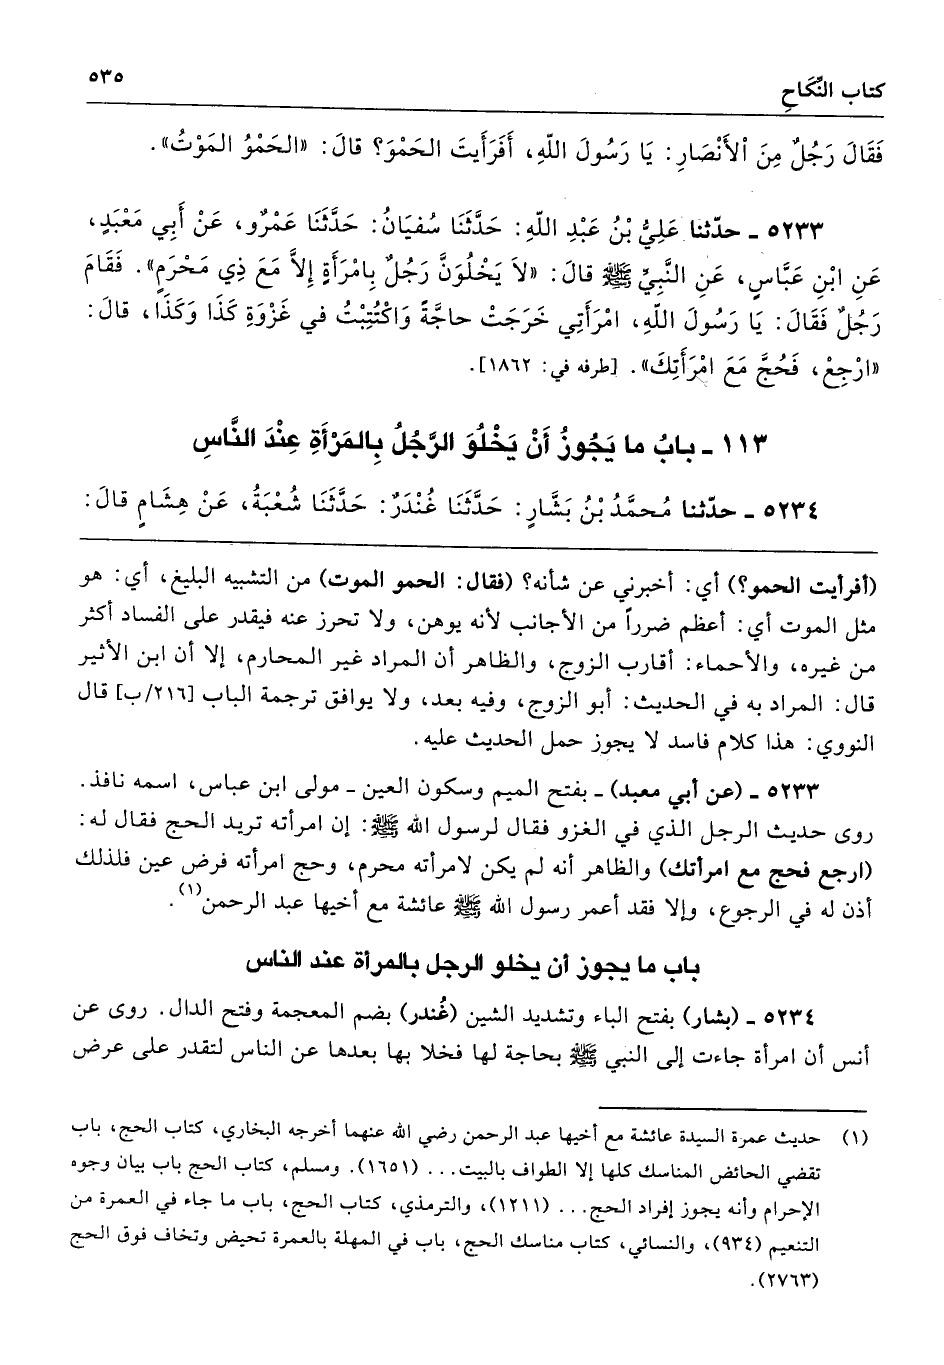 كتاب النِّكَاحِ
٥٣٥
فَقَالَ رَجُلٌ مِنَ الأَنْصَارِ: يَا رَسُولَ اللّهِ، أَفَرَأَيتَ الحَمْوَ؟ قالَ: «الحَمْوُ المَوْتُ».
٥٢٣٣ ـ حدّثنا عَلِيُّ بْنُ عَبْدِ اللّهِ: حَدَّثَنَا سُفيَانُ: حَدَّثَنَا عَمْرٌو، عَنْ أَبِي مَعْبَدٍ،
عَنِ ابْنِ عَبَّاسٍ، عَنِ النَّبِيِّ ﷺ قالَ: «لاَ يَخْلُوَنَّ رَجُلٌ بِامْرَأَةٍ إِلاَّ مَعَ ذِي مَحْرَمٍ». فَقَامَ
رَجُلٌ فَقَالَ: يَا رَسُولَ اللّهِ، امْرَأَتِي خَرَجَتْ حاجَّةً وَاكْتُتِبْتُ في غَزْوَةِ كَذَا وَكَذَا، قالَ:
«ارْجِعْ، فَحُجَّ مَعَ امْرَأَتِكَ». [طرفه في: ١٨٦٢].
١١٣ ـ بابُ ما يَجُوزُ أَنْ يَخْلُوَ الرَّجُلُ بِالمَرْأَةِ عِنْدَ النَّاسِ
٥٢٣٤ ـ حدّثنا مُحمَّدُ بْنُ بَشَّارٍ: حَدَّثَنَا غُنْدَرٌ: حَدَّثَنَا شُعْبَةُ، عَنْ هِشَامٍ قالَ:
(أفرأيت الحمو؟) أي: أخبرني عن شأنه؟ (فقال: الحمو الموت) من التشبيه البليغ، أي: هو
مثل الموت أي: أعظم ضرراً من الأجانب لأنه يوهن، ولا تحرز عنه فيقدر على الفساد أكثر
من غيره، والأحماء: أقارب الزوج، والظاهر أن المراد غير المحارم، إلا أن ابن الأثير
قال: المراد به في الحديث: أبو الزوج، وفيه بعد، ولا يوافق ترجمة الباب [٢١٦/ب] قال
النووي: هذا كلام فاسد لا يجوز حمل الحديث عليه.
٥٢٣٣ ـ (عن أبي معبد) ـ بفتح الميم وسكون العين ـ مولى ابن عباس، اسمه نافذ.
روى حديث الرجل الذي في الغزو فقال لرسول الله ﷺ: إن امرأته تريد الحج فقال له:
(ارجع فحج مع امرأتك) والظاهر أنه لم يكن لامرأته محرم، وحج امرأته فرض عين فلذلك
أذن له في الرجوع، وإلا فقد أعمر رسول الله ﷺ عائشة مع أخيها عبد الرحمن(١).
باب ما يجوز أن يخلو الرجل بالمرأة عند الناس
٥٢٣٤ ـ (بشار) بفتح الباء وتشديد الشين (غُندر) بضم المعجمة وفتح الدال. روى عن
أنس أن امرأة جاءت إلى النبي ﷺ بحاجة لها فخلا بها بعدها عن الناس لتقدر على عرض
(١) حديث عمرة السيدة عائشة مع أخيها عبد الرحمن رضي الله عنهما أخرجه البخاري، كتاب الحج، باب
تقضي الحائض المناسك كلها إلا الطواف بالبيت... (١٦٥١). ومسلم، كتاب الحج باب بيان وجوه
الإحرام وأنه يجوز إفراد الحج... (١٢١١)، والترمذي، كتاب الحج، باب ما جاء في العمرة من
التنعيم (٩٣٤)، والنسائي، كتاب مناسك الحج، باب في المهلة بالعمرة تحيض وتخاف فوق الحج
(٢٧٦٣).